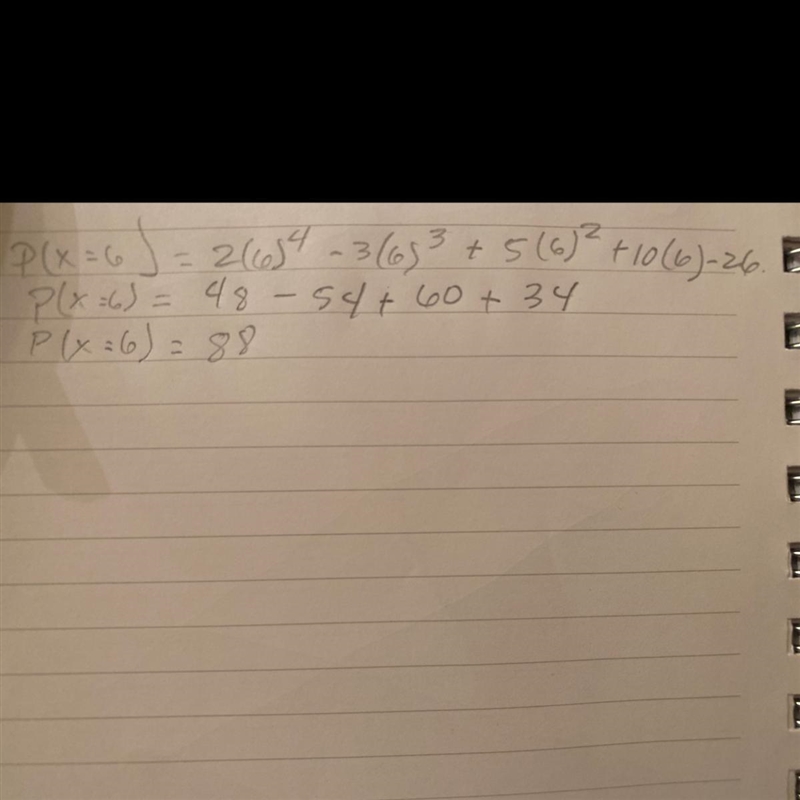 P(x=6) = 2(6)⁴ - 3(6)³ + 5(6)² + 10(6) - 26.
P(x=6) = 48 - 54 + 60 + 34
P(x=6) = 88